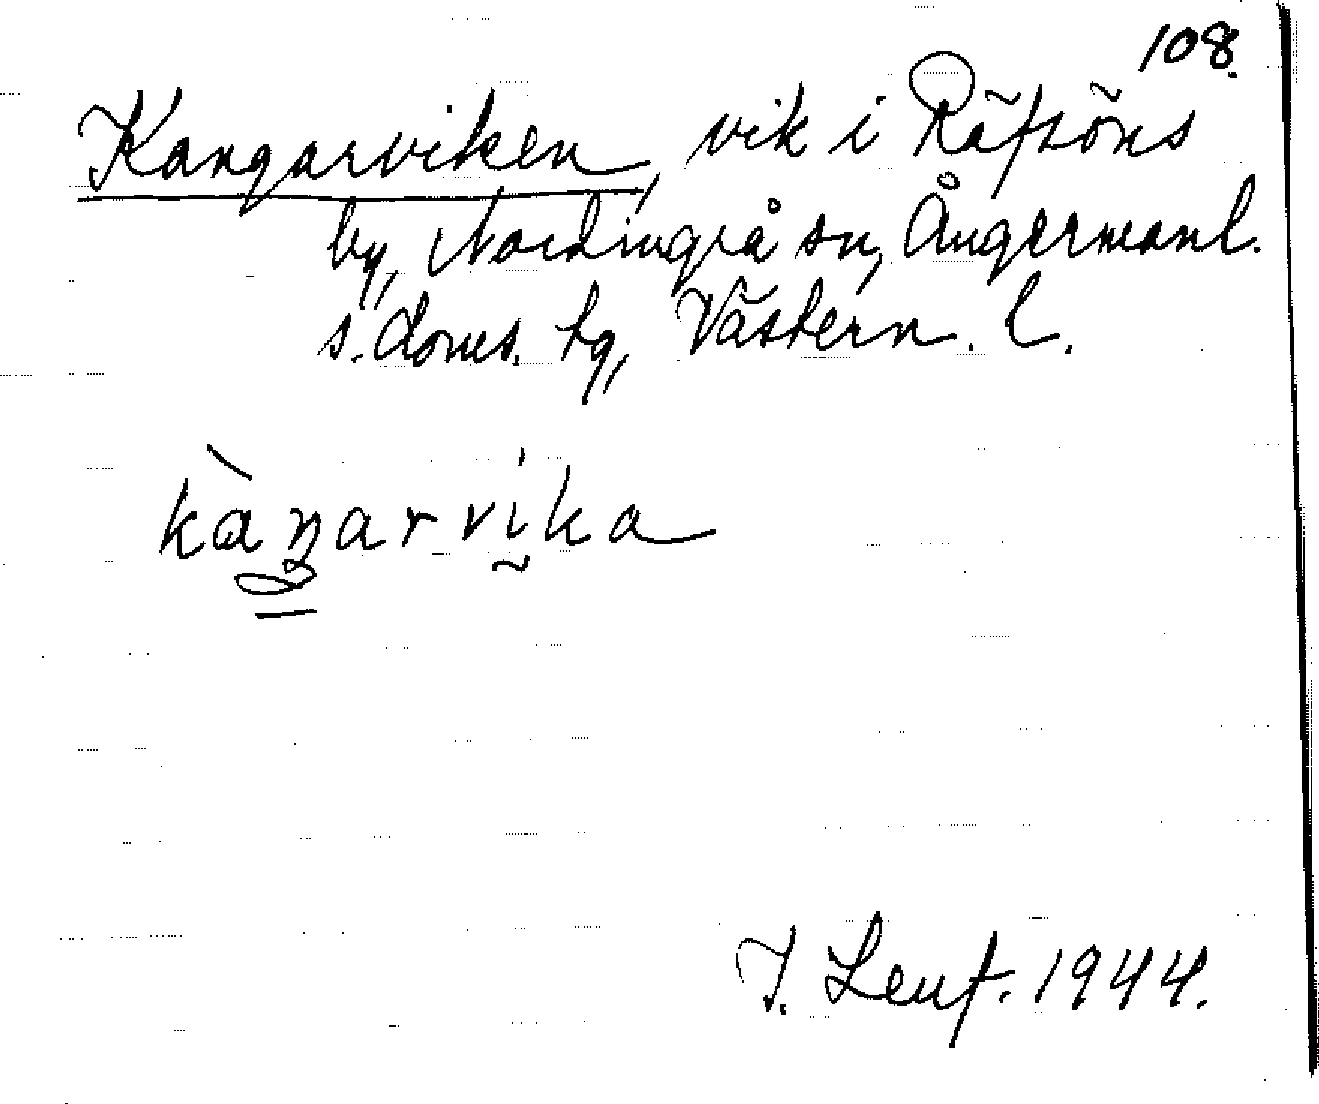 108.
Kangarviken, vik i Räfsöns
by, Nordingrå sn, Ångermanl.
s. doms. tg, Västern. l.
kàŋarvika
J. Leuf. 1944.